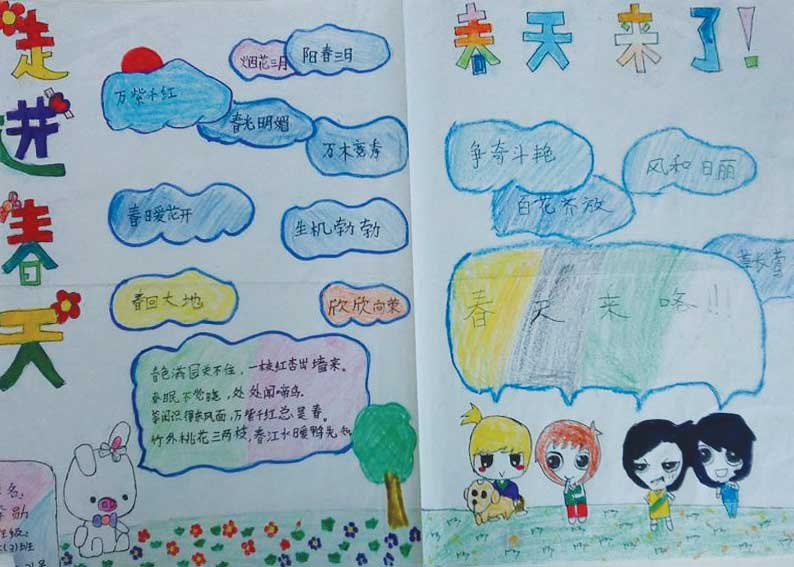 走进春天
烟花三月
阳春三日
万紫千红
春光明媚
万木
春日暖花开
生机勃勃
春回大地
欣欣向荣
春色满园关不住，一枝红杏出墙来。
春眠不觉晓，处处闻啼鸟。
等闲识得东风面，万紫千红总是春。
竹外桃花三两枝，春江水暖鸭先知
名：
班级：
春天来了！
争奇斗艳
风和日丽
百花齐放
春天来咯！！！